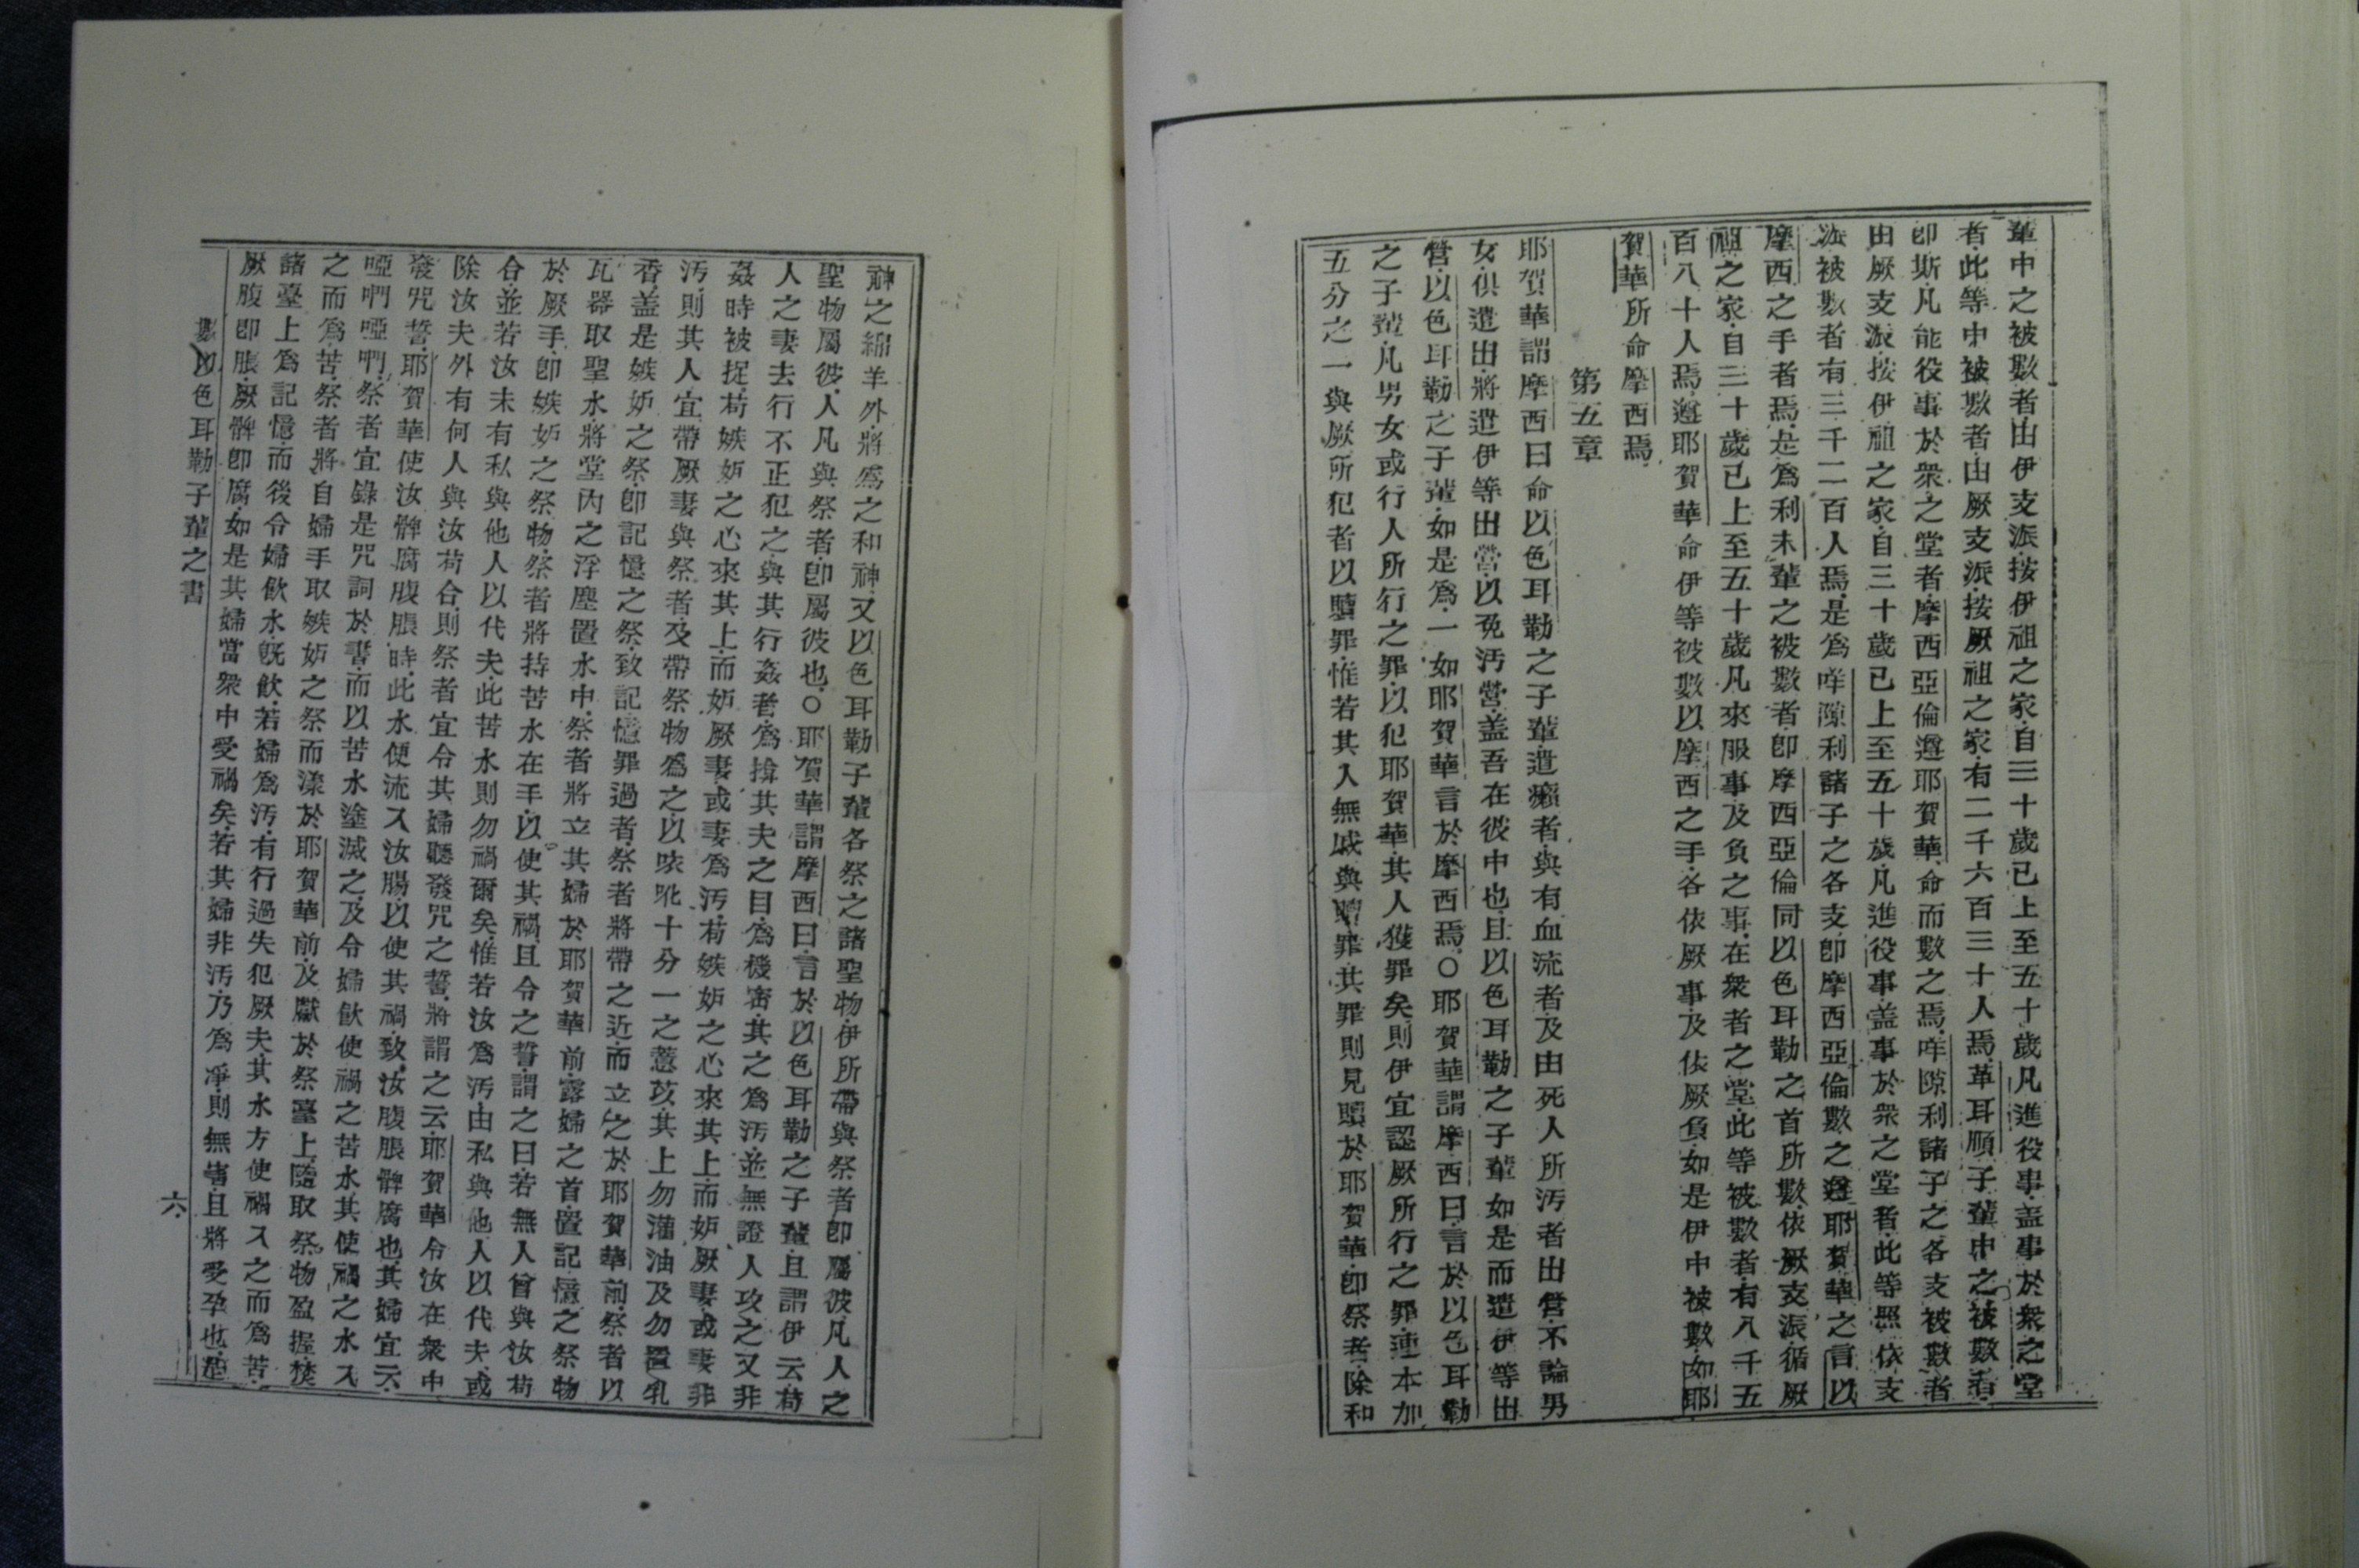 輩中之被數者由伊支派按伊祖之家自三十歲已上至五十歲凡進役事盖事於衆之堂
者此等中被數者由厥支派按厥祖之家有二千六百三十人焉革耳順子輩中之被數者
卽斯凡能役事於衆之堂者摩西亞倫遵耶賀華命而數之焉咩隙利諸子之各支被數者
由厥支派按伊祖之家自三十歲已上至五十歲凡進役事盖事於衆之堂者此等照依支
派被數者有三千二百人焉是爲咩隙利諸子之各支卽摩西亞倫數之遵耶賀華之言以
摩西之手者焉是爲利未輩之被數者卽摩西亞倫同以色耳勒之首所數依厥支派循厥
祖之家自三十歲已上至五十歲凡來服事及負之事在衆者之堂此等被數者有八千五
百八十人焉遵耶賀華命伊等被數以摩西之手各依厥事及依厥負如是伊中被數如耶
賀華所命摩西焉
第五章
耶賀華謂摩西曰命以色耳勒之子輩遣癩者與有血流者及由死人所汚者出營不論男
女俱遣出將遣伊等出營以免汚營盖吾在彼中也且以色耳勒之子輩如是而遣伊等出
營以色耳勒之子輩如是爲一如耶賀華言於摩西焉○耶賀華謂摩西曰言於以色耳勒
之子輩凡男女或行人所行之罪以犯耶賀華其人獲罪矣則伊宜認厥所行之罪連本加
五分之一與厥所犯者以贖罪惟若其人無戚與贖罪其罪則見贖於耶賀華卽祭者除和
神之綿羊外將爲之和神又以色耳勒子輩各祭之諸聖物伊所帶與祭者卽屬彼凡人之
聖物屬彼人凡與祭者卽屬彼也○耶賀華謂摩西曰言於以色耳勒之子輩且謂伊云苟
人之妻去行不正犯之與其行姦者爲揜其夫之目爲機密其之爲汚並無證人攻之又非
姦時被捉苟嫉妒之心來其上而妒厥妻或妻爲汚苟嫉妒之心來其上而妒厥妻或妻非
汚則其人宜帶厥妻與祭者及帶祭物爲之以咴吡十分一之薏苡其上勿灌油及勿置乳
香盖是嫉妒之祭卽記憶之祭致記憶罪過者祭者將帶之近而立之於耶賀華前祭者以
瓦器取聖水將堂內之浮塵置水中祭者將立其婦於耶賀華前露婦之首置記憶之祭物
於厥手卽嫉妒之祭物祭者將持苦水在手以使其禍且令之誓謂之曰若無人曾與汝苟
合並若汝未有私與他人以代夫此苦水則勿禍爾矣惟若汝爲汚由私與他人以代夫或
除汝夫外有何人與汝苟合則祭者宜令其婦聽發咒之誓將謂之云耶賀華令汝在衆中
發咒誓耶賀華使汝髀腐腹脹時此水便流入汝腸以使其禍致汝腹脹髀腐也其婦宜云
啞㗎啞㗎祭者宜錄是咒詞於書而以苦水塗滅之及令婦飲使禍之苦水其使禍之水入
之而爲苦祭者將自婦手取嫉妒之祭而漾於耶賀華前及獻於祭臺上隨取祭物盈握焚
諸臺上爲記憶而後令婦飲水旣飲若婦爲汚有行過失犯厥夫其水方使禍入之而爲苦
厥腹卽脹厥髀卽腐如是其婦當衆中受禍矣若其婦非汚乃爲凈則無害且將受孕也是
數以色耳勒子輩之書
六